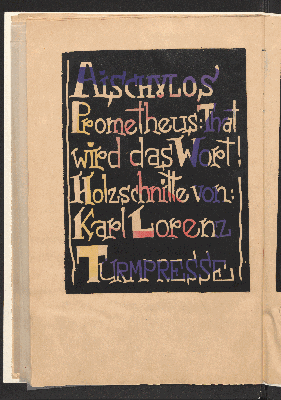 AISCHYLOS'
Prometheus: That
wird das Wort!
Holzschnitte von:
Karl Lorenz
TURMPRESSE